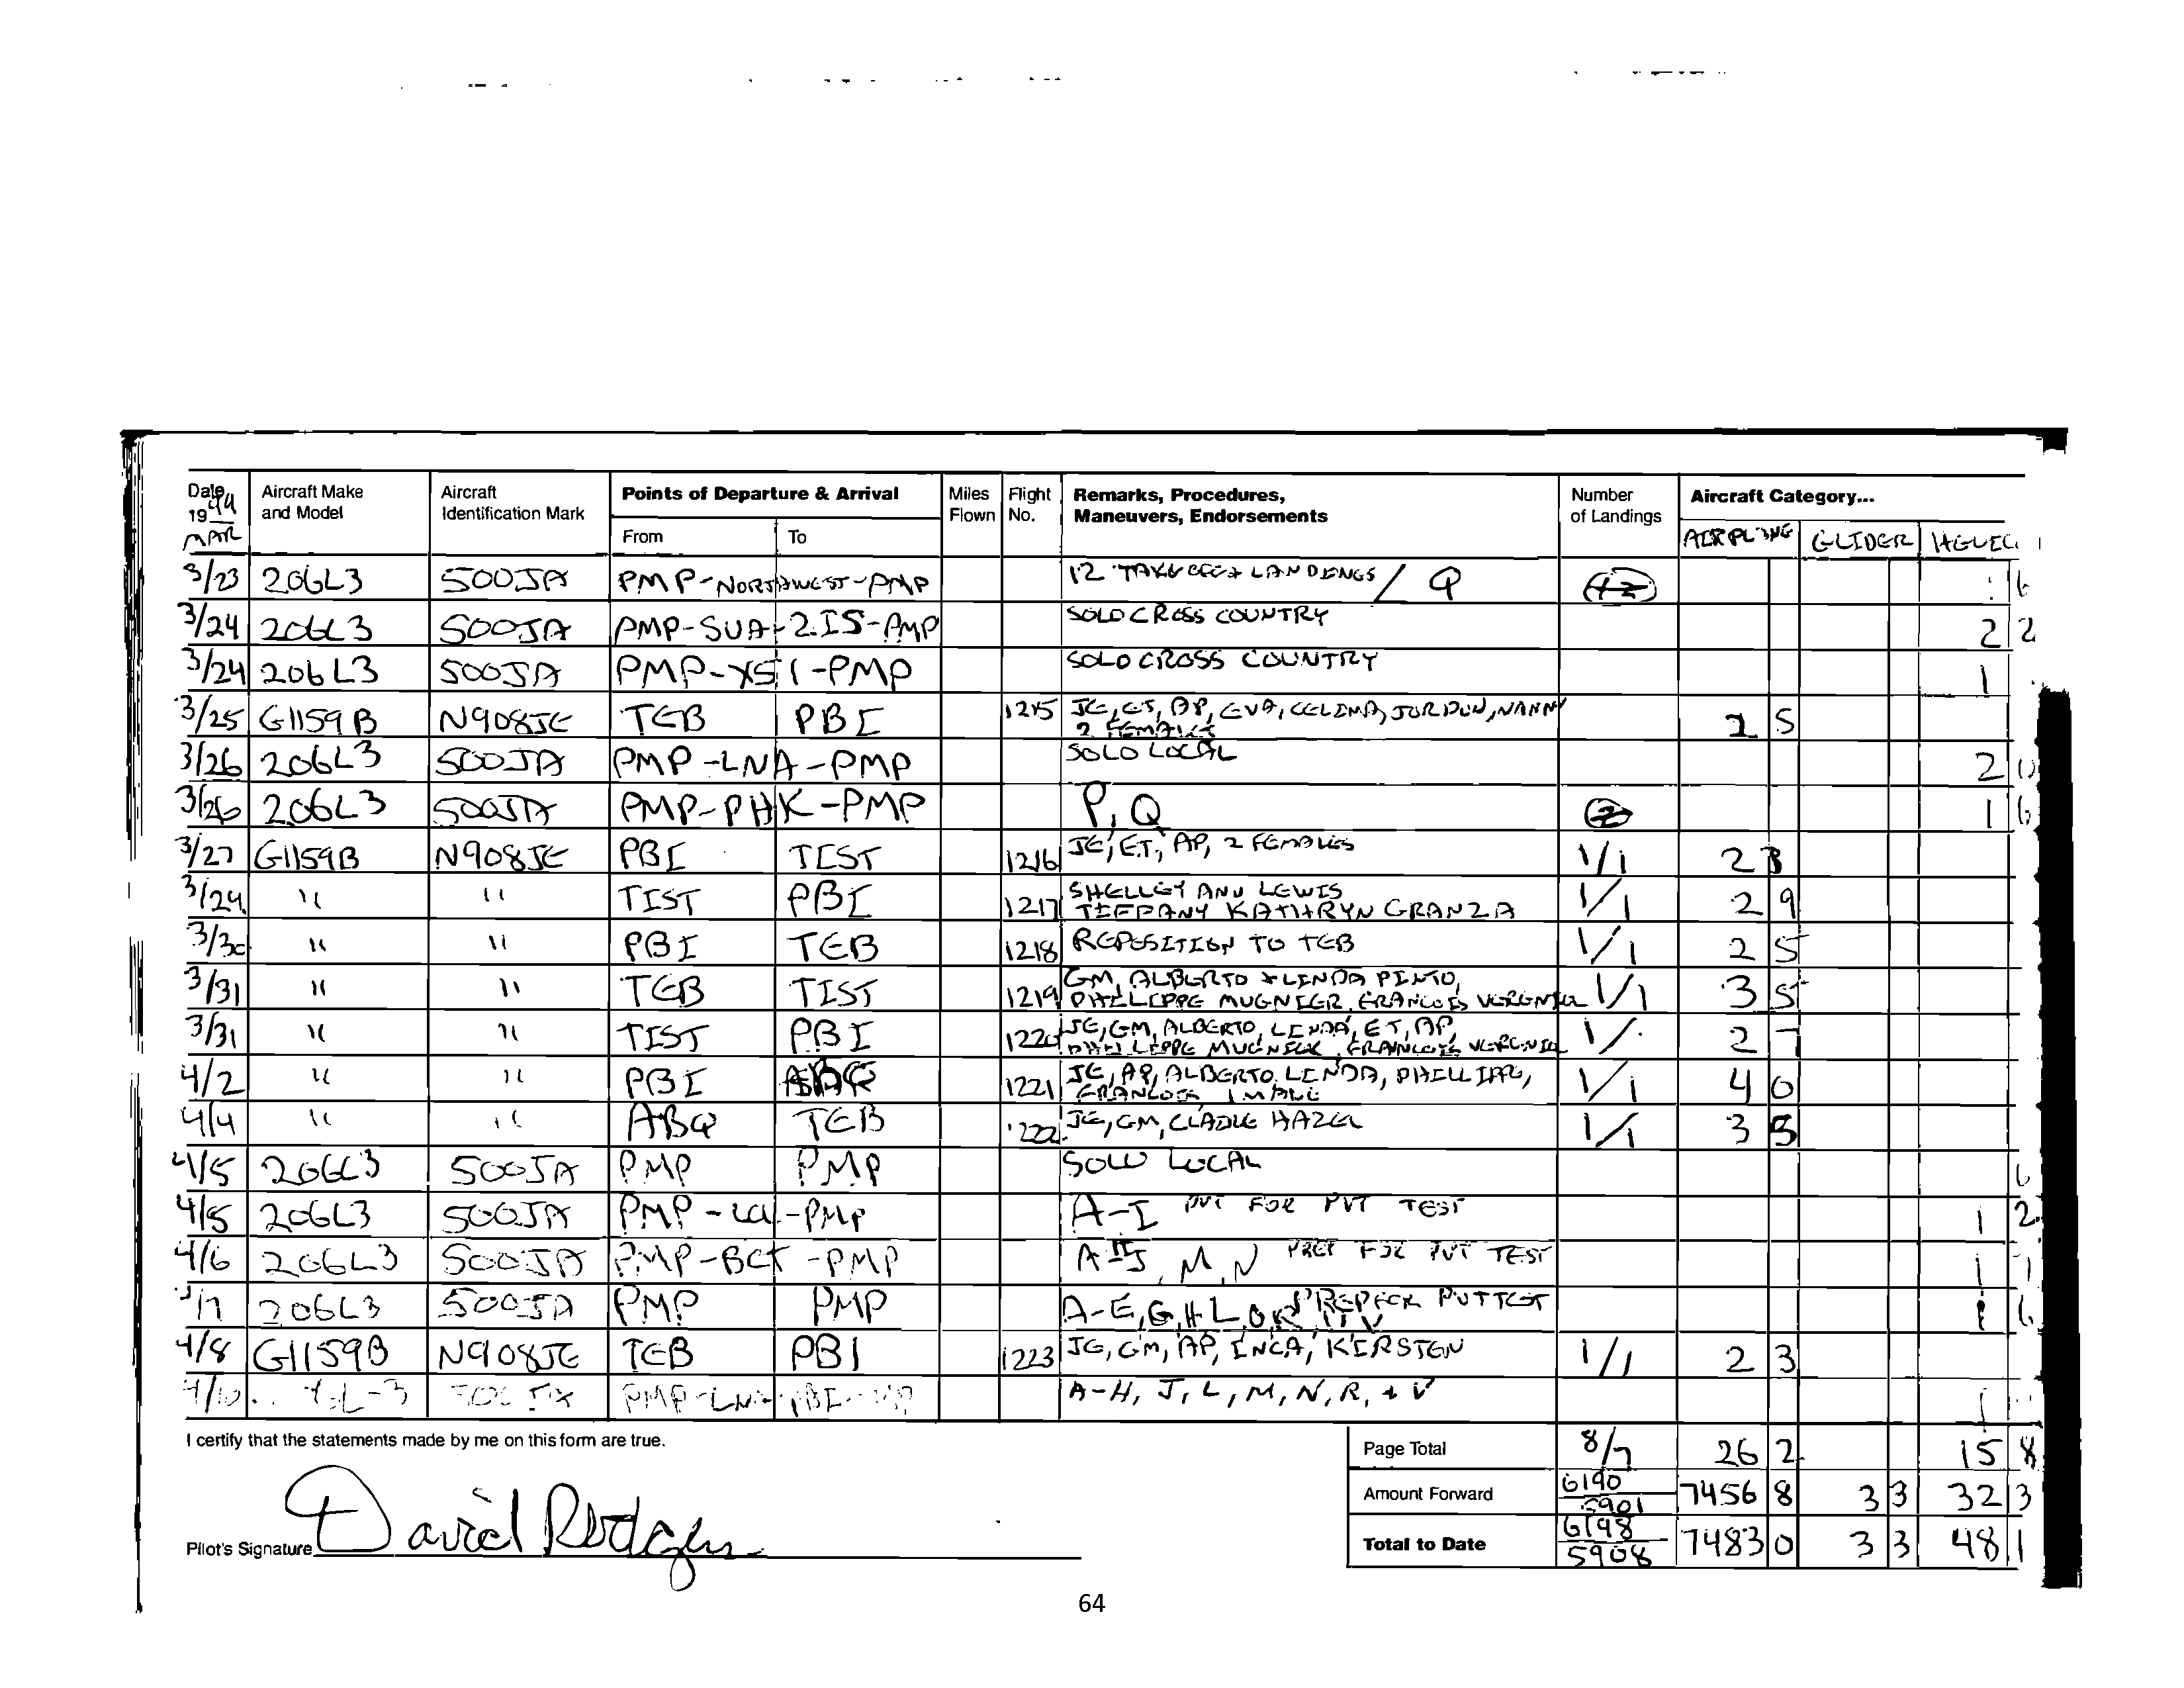 Date Aircraft Make Aircraft Points of Departure & Arrival Miles Flight Remarks, Procedures, Number Aircraft Category...
1999 and Model Identification Mark Flown No. Maneuvers, Endorsements of Landings
MAR From To AIRPLANE GLIDER HELIC
3/23 206L3 500JA PMP-NORTHWEST-PMP 12 TAKEOFF + LANDINGS / Q 12 6
3/24 206L3 500JA PMP-SUA-2IS-PMP SOLO CROSS COUNTRY 2 2
3/24 206L3 500JA PMP-X51-PMP SOLO CROSS COUNTRY 1
3/25 G1159B N908JE TEB PBI 1215 JE, ET, AP, EVA, CELINA, JORDUN, NANNY 2 5
2 FEMALES
3/26 206L3 500JA PMP-LNA-PMP SOLO LOCAL 2 0
3/26 206L3 500JA PMP-PHK-PMP P, Q 2 1 6
3/27 G1159B N908JE PBI TIST 1216 JE, ET, AP, 2 FEMALES 1/1 2 8
3/29 " " TIST PBI 1217 SHELLEY ANN LEWIS 1/1 2 9
TIFFANY KATHRYN GRANZA
3/30 " " PBI TEB 1218 REPOSITION TO TEB 1/1 2 5
3/31 " " TEB TIST 1219 GM, ALBERTO + LINDA PINTO, 1/1 3 5
PHILLIPPE MUGNIER, FRANCOIS
3/31 " " TIST PBI 1220 JE, GM, ALBERTO, LINDA, ET, AP, 1/ 2 7
FRANCOIS
4/2 " " PBI ABQ 1221 JE, AP, ALBERTO, LINDA, PHILLIPPE, 1/1 4 0
FRANCOIS 1 MALE
4/4 " " ABQ TEB 1222 JE, GM, CLADUE HAZEL 1/1 3 5
4/5 206L3 500JA PMP PMP SOLO LOCAL 6
4/5 206L3 500JA PMP - -PMP A-I FOR PVT TEST 1 2
4/6 206L3 500JA PMP-BCT-PMP M, N PREP FOR PVT TEST 1 1
4/7 206L3 500JA PMP PMP A-E, G, H, L, O, PREP FOR PVT TEST 1 6
4/8 G1159B N908JE TEB PBI 1223 JE, GM, AP, INCA, KIRSTEN 1/1 2 3
4/10 A-H, J, L, M, N, R, + V 1
I certify that the statements made by me on this form are true. Page Total 8/7 26 2 15 8
Amount Forward 6190 5901 7456 8 3 3 32 3
Pilot's Signature David Rodgers Total to Date 6198 5908 7483 0 3 3 48 1
64